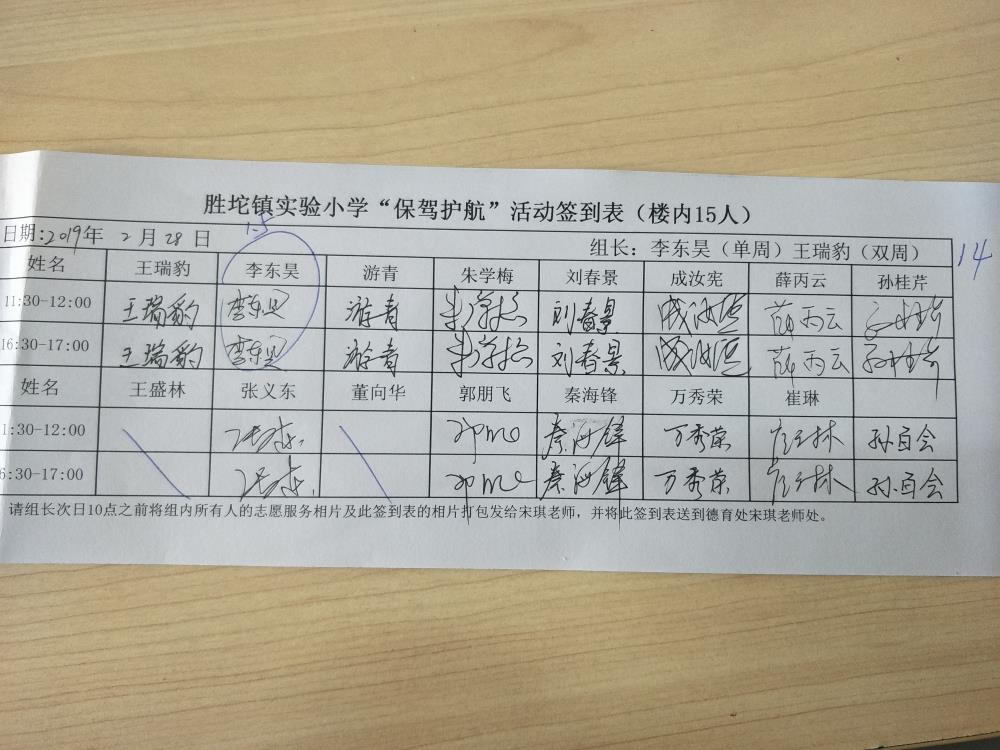 胜坨镇实验小学“保驾护航”活动签到表（楼内15人）
1.5
日期:2019年 2月28日 组长：李东昊（单周）王瑞豹（双周） 14
姓名 王瑞豹 李东昊 游青 朱学梅 刘春景 成汝宪 薛丙云 孙桂芹
11:30-12:00 王瑞豹 李东昊 游青 朱学梅 刘春景 成汝宪 薛丙云 孙桂芹
16:30-17:00 王瑞豹 李东昊 游青 朱学梅 刘春景 成汝宪 薛丙云 孙桂芹
姓名 王盛林 张义东 董向华 郭朋飞 秦海锋 万秀荣 崔琳
1:30-12:00 秦海锋 万秀荣 崔琳 孙百会
6:30-17:00 秦海锋 万秀荣 崔琳 孙百会
请组长次日10点之前将组内所有人的志愿服务相片及此签到表的相片打包发给宋琪老师，并将此签到表送到德育处宋琪老师处。